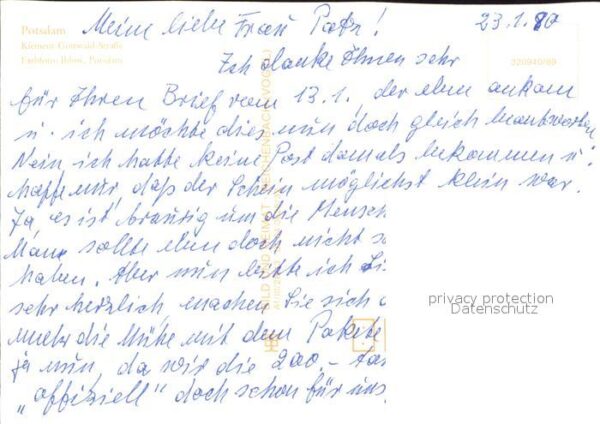 Potsdam
Klement-Gottwald-Straße
Meine liebe Frau Patz!
23.1.90
220940/89
Ich danke Ihnen sehr
für Ihren Brief vom 13.1., der eben ankam
u. ich möchte dies nun doch gleich beantworten
Nein ich hatte keine Post damals bekommen u.
hoffe nur, daß der Schein möglichst klein war.
Ja, es ist traurig um die Mensch
Man sollte eben doch nicht so
haben. Aber nun bitte ich Si
sehr herzlich, machen Sie sich
mehr die Mühe mit dem Pakete
ja nun, da wir die 200.-
"offiziell" doch schon für uns
BILD UND HEIMAT REICHENBACH (VOGTL)
privacy protection
Datenschutz